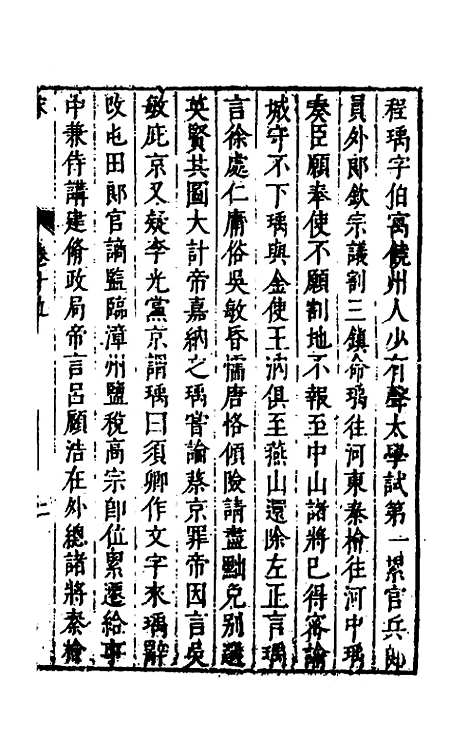 程瑀字伯㝢饒州人少有聲太學試第一累官兵部
員外郎欽宗議割三鎮命瑀往河東秦檜往河中瑀
奏臣願奉使不願割地不報至中山諸將已得密諭
城守不下瑀與金使王汭俱至燕山還除左正言瑀
言徐處仁庸俗吳敏昏懦唐恪傾險請盡黜免別選
英賢共圖大計帝嘉納之瑀嘗論蔡京罪帝因言吳
敏庇京又疑李光黨京謂瑀曰須卿作文字來瑀辭
改屯田郎官謫監臨漳州鹽稅高宗卽位累遷給事
中兼侍講建脩政局帝言呂頤浩在外總諸將秦檜
卷十五